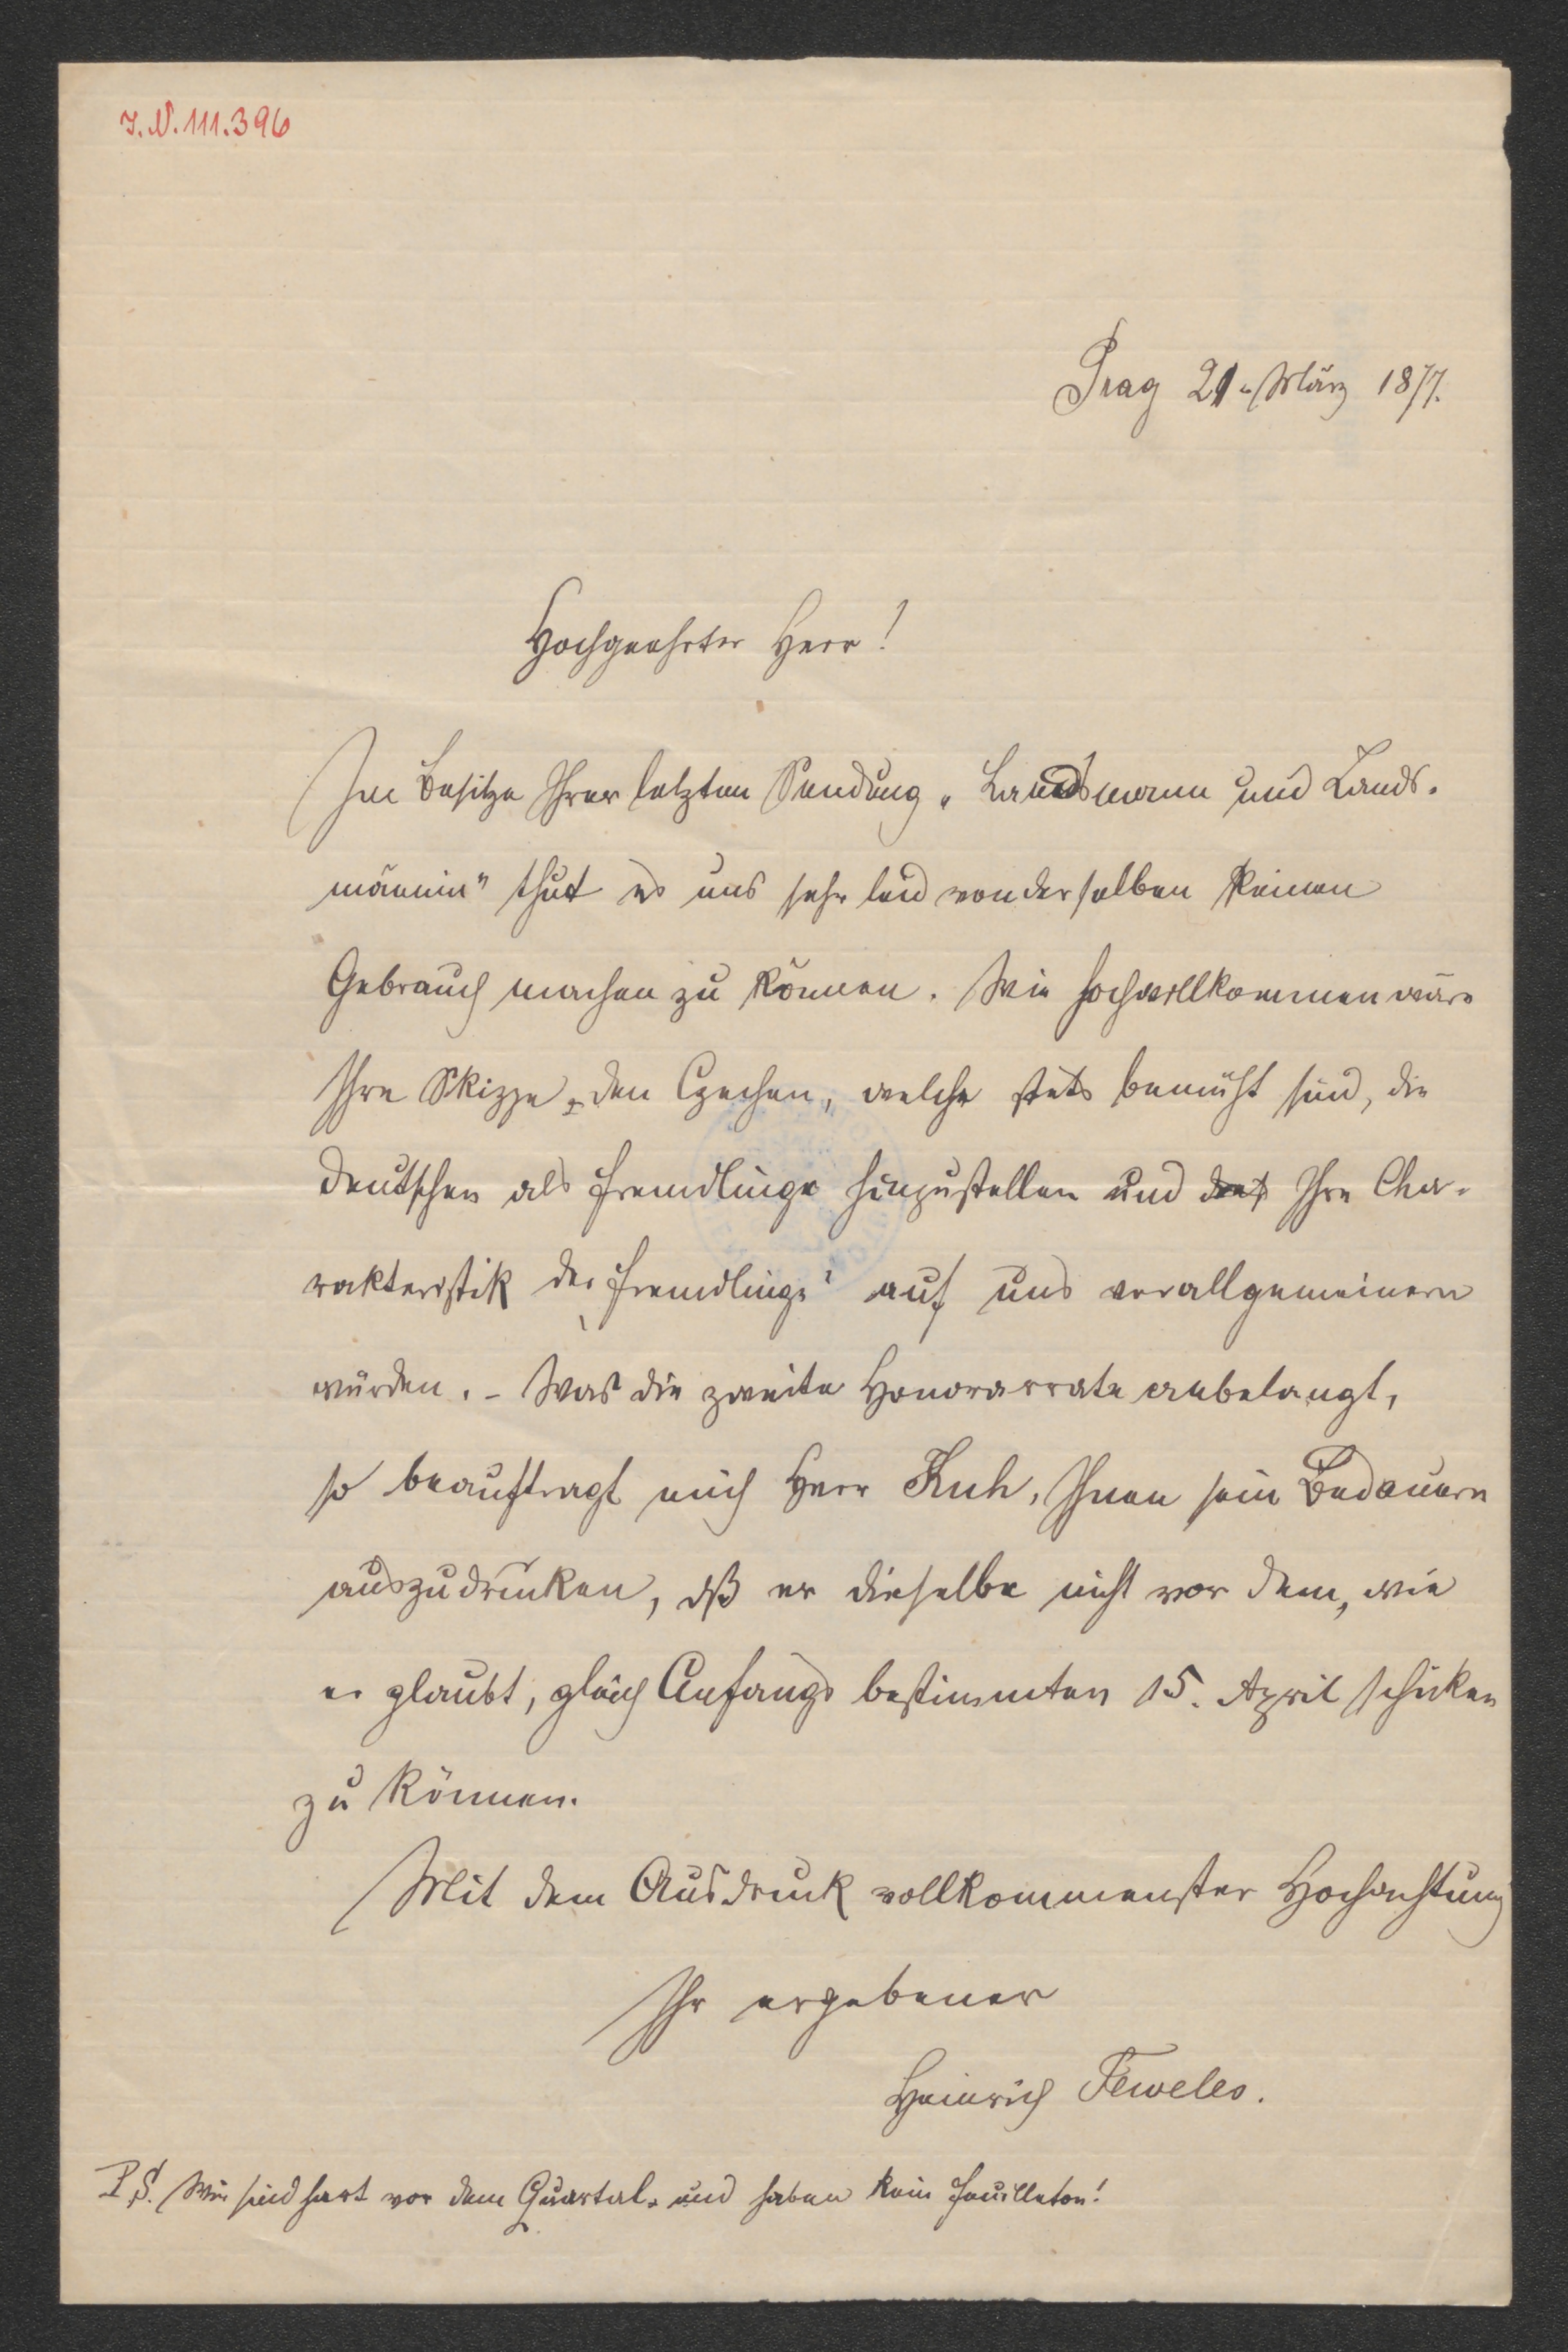 I. N. 111.396
Prag 21. März 1877.
Hochgeehrter Herr!
Im Besitze Ihrer letzten Sendung „Landsmann und Lands-
männin" thut es uns sehr leid von derselben keinen
Gebrauch machen zu können. Wie hochwillkommen wäre
Ihre Skizze den Czechen, welche stets bemüht sind, die
Deutschen als Fremdlinge hinzustellen und Ihre Cha-
rakteristik der „Fremdlinge" auf uns verallgemeinern
würden. – Was die zweite Honorarrate anbelangt,
so beauftragt mich Herr Kuh, Ihnen sein Bedauern
auszudrücken, dß er dieselbe nicht vor dem, wie
er glaubt, gleich Anfangs bestimmten 15. April schicken
zu können.
Mit dem Ausdruck vollkommenster Hochachtung
Ihr ergebener
Heinrich Teweles.
P.S. Wir sind hart vor dem Quartal und haben kein Feuilleton!